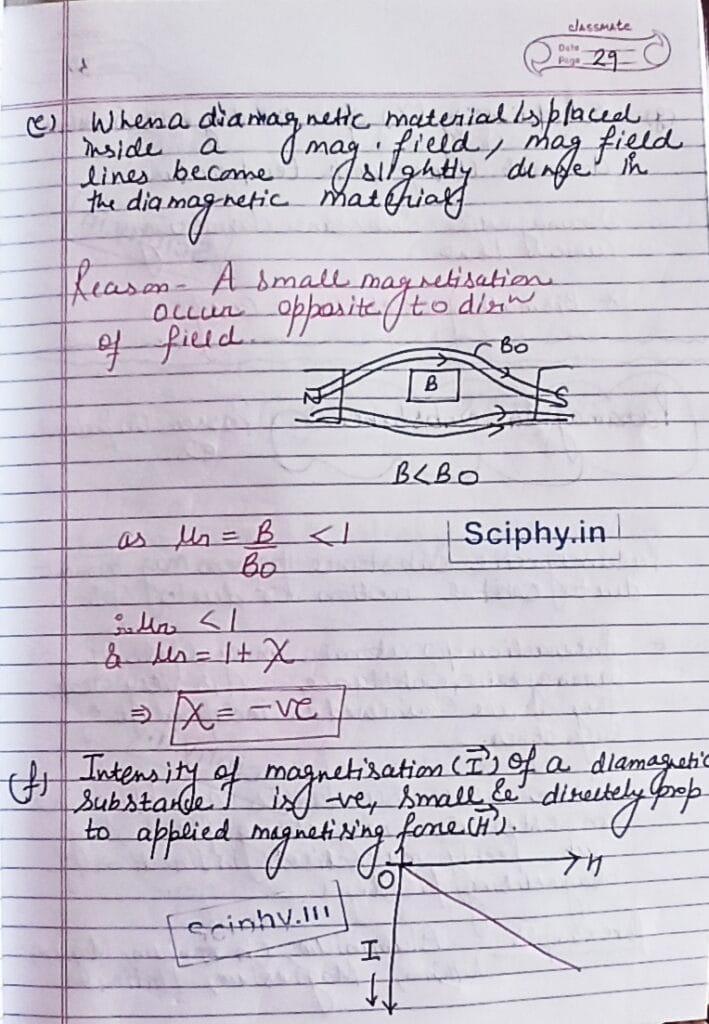 classmate
Date
Page 29
(e) When a diamagnetic material is placed
inside a mag. field, mag field
lines become slightly dense in
the diamagnetic material
Reason - A small magnetisation
occur opposite to dirn
of field.
B0
N B S
B<B0
as μr = B/B0 <1
Sciphy.in
∴ μr <1
& μr = 1+ χ
⇒ χ = -ve
(f) Intensity of magnetisation (I⃗) of a diamagnetic
substance is -ve, small & directely prop
to applied magnetising force (H⃗).
O H
I